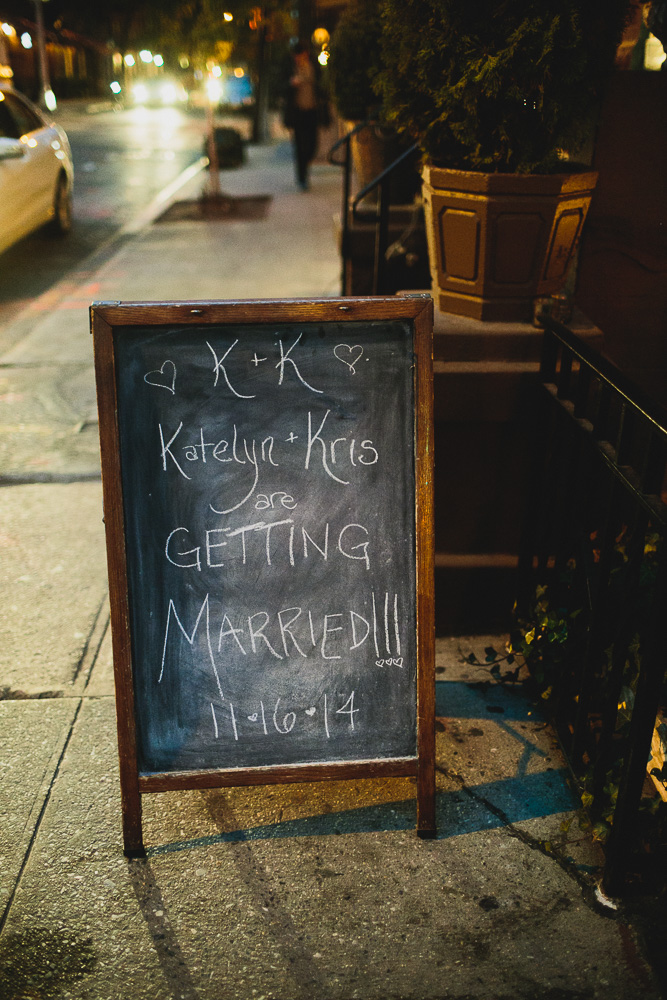 K + K
Katelyn + Kris
are
GETTING
MARRIED!!!
11·16·14